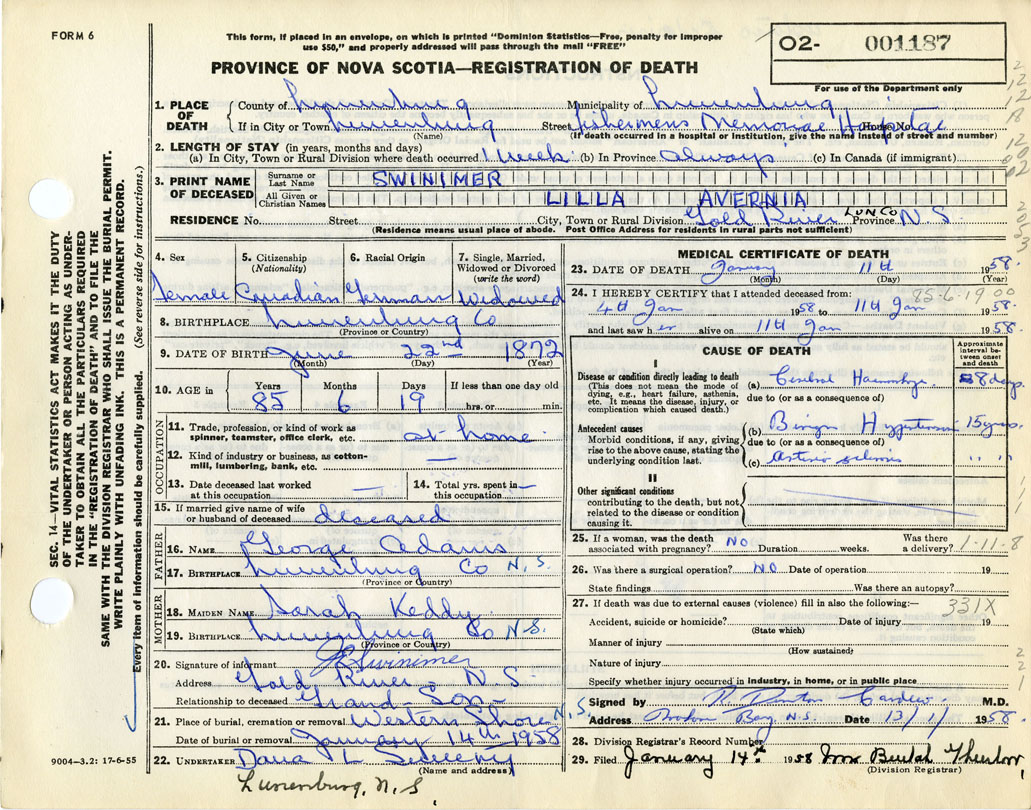 FORM 6
This form, if placed in an envelope, on which is printed "Dominion Statistics—Free, penalty for improper
use $50," and properly addressed will pass through the mail "FREE"
02- 001187
For use of the Department only
PROVINCE OF NOVA SCOTIA—REGISTRATION OF DEATH
SEC. 14—VITAL STATISTICS ACT MAKES IT THE DUTY
OF THE UNDERTAKER OR PERSON ACTING AS UNDER-
TAKER TO OBTAIN ALL THE PARTICULARS REQUIRED
IN THE "REGISTRATION OF DEATH" AND TO FILE THE
SAME WITH THE DIVISION REGISTRAR WHO SHALL ISSUE THE BURIAL PERMIT.
WRITE PLAINLY WITH UNFADING INK. THIS IS A PERMANENT RECORD.
Every item of information should be carefully supplied. (See reverse side for instructions.)
1. PLACE OF DEATH
County of Lunenburg Municipality of Lunenburg
If in City or Town Lunenburg Street Fishermens Memorial Hospital House No.
(Name) (If death occurred in a hospital or institution, give the name instead of street and number)
2. LENGTH OF STAY (in years, months and days)
(a) In City, Town or Rural Division where death occurred 1 week (b) In Province always (c) In Canada (if immigrant)
3. PRINT NAME OF DECEASED
Surname or Last Name SWINIMER
All Given or Christian Names LILLA AVERNIA
RESIDENCE No. Street City, Town or Rural Division Gold River Lun Co Province N S
(Residence means usual place of abode. Post Office Address for residents in rural parts not sufficient)
4. Sex Female
5. Citizenship (Nationality) Canadian
6. Racial Origin German
7. Single, Married, Widowed or Divorced (write the word) Widowed
8. BIRTHPLACE Lunenburg Co
(Province or Country)
9. DATE OF BIRTH June 22nd 1872
(Month) (Day) (Year)
10. AGE in Years 85 Months 6 Days 19 If less than one day old hrs. or min.
OCCUPATION
11. Trade, profession, or kind of work as spinner, teamster, office clerk, etc. at home
12. Kind of industry or business, as cotton-mill, lumbering, bank, etc. —
13. Date deceased last worked at this occupation —
14. Total yrs. spent in this occupation —
15. If married give name of wife or husband of deceased deceased
FATHER
16. NAME George Adams
17. BIRTHPLACE Lunenburg Co N.S.
(Province or Country)
MOTHER
18. MAIDEN NAME Sarah Keddy
19. BIRTHPLACE Lunenburg Co N.S.
(Province or Country)
20. Signature of informant Swinimer
Address Gold River N.S
Relationship to deceased Grand Son
21. Place of burial, cremation or removal Western Shore N.S
Date of burial or removal January 14th 1958
22. UNDERTAKER Dana L Sweeny
(Name and address)
Lunenburg, N.S
9004—3.2: 17-6-55
MEDICAL CERTIFICATE OF DEATH
23. DATE OF DEATH January 11th 1958
(Month) (Day) (Year)
24. I HEREBY CERTIFY that I attended deceased from: 85-6-19 00
4th Jan 1958 to 11th Jan 1958
and last saw her alive on 11th Jan 1958
CAUSE OF DEATH
Approximate interval between onset and death
I
Disease or condition directly leading to death
(This does not mean the mode of dying, e.g., heart failure, asthenia, etc. It means the disease, injury, or complication which caused death.)
(a) Cerebral Haemorrhage 8 days
due to (or as a consequence of)
Antecedent causes
Morbid conditions, if any, giving rise to the above cause, stating the underlying condition last.
(b) Benign Hypertension 15 yrs
due to (or as a consequence of)
(c) Arteriosclerosis " "
II
Other significant conditions
contributing to the death, but not related to the disease or condition causing it.
25. If a woman, was the death associated with pregnancy? NO Duration weeks. Was there a delivery? 1-11-8
26. Was there a surgical operation? NO Date of operation 19
State findings Was there an autopsy?
27. If death was due to external causes (violence) fill in also the following:— 331X
Accident, suicide or homicide? Date of injury 19
(State which)
Manner of injury
(How sustained)
Nature of injury
Specify whether injury occurred in industry, in home, or in public place
Signed by M.D.
Address N.S. Date 13/1/ 1958
28. Division Registrar's Record Number
29. Filed January 14th 1958
(Division Registrar)